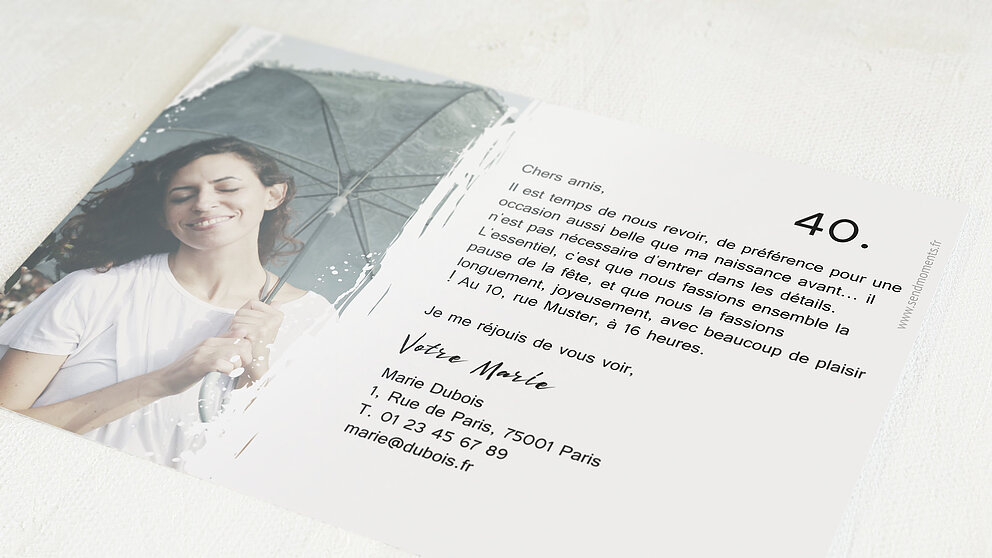 40.
Chers amis,
Il est temps de nous revoir, de préférence pour une
occasion aussi belle que ma naissance avant... il
n'est pas nécessaire d'entrer dans les détails.
L'essentiel, c'est que nous fassions ensemble la
pause de la fête, et que nous la fassions
longuement, joyeusement, avec beaucoup de plaisir
! Au 10, rue Muster, à 16 heures.
Je me réjouis de vous voir,
Votre Marie
Marie Dubois
1, Rue de Paris, 75001 Paris
T. 01 23 45 67 89
marie@dubois.fr
www.sendmoments.fr